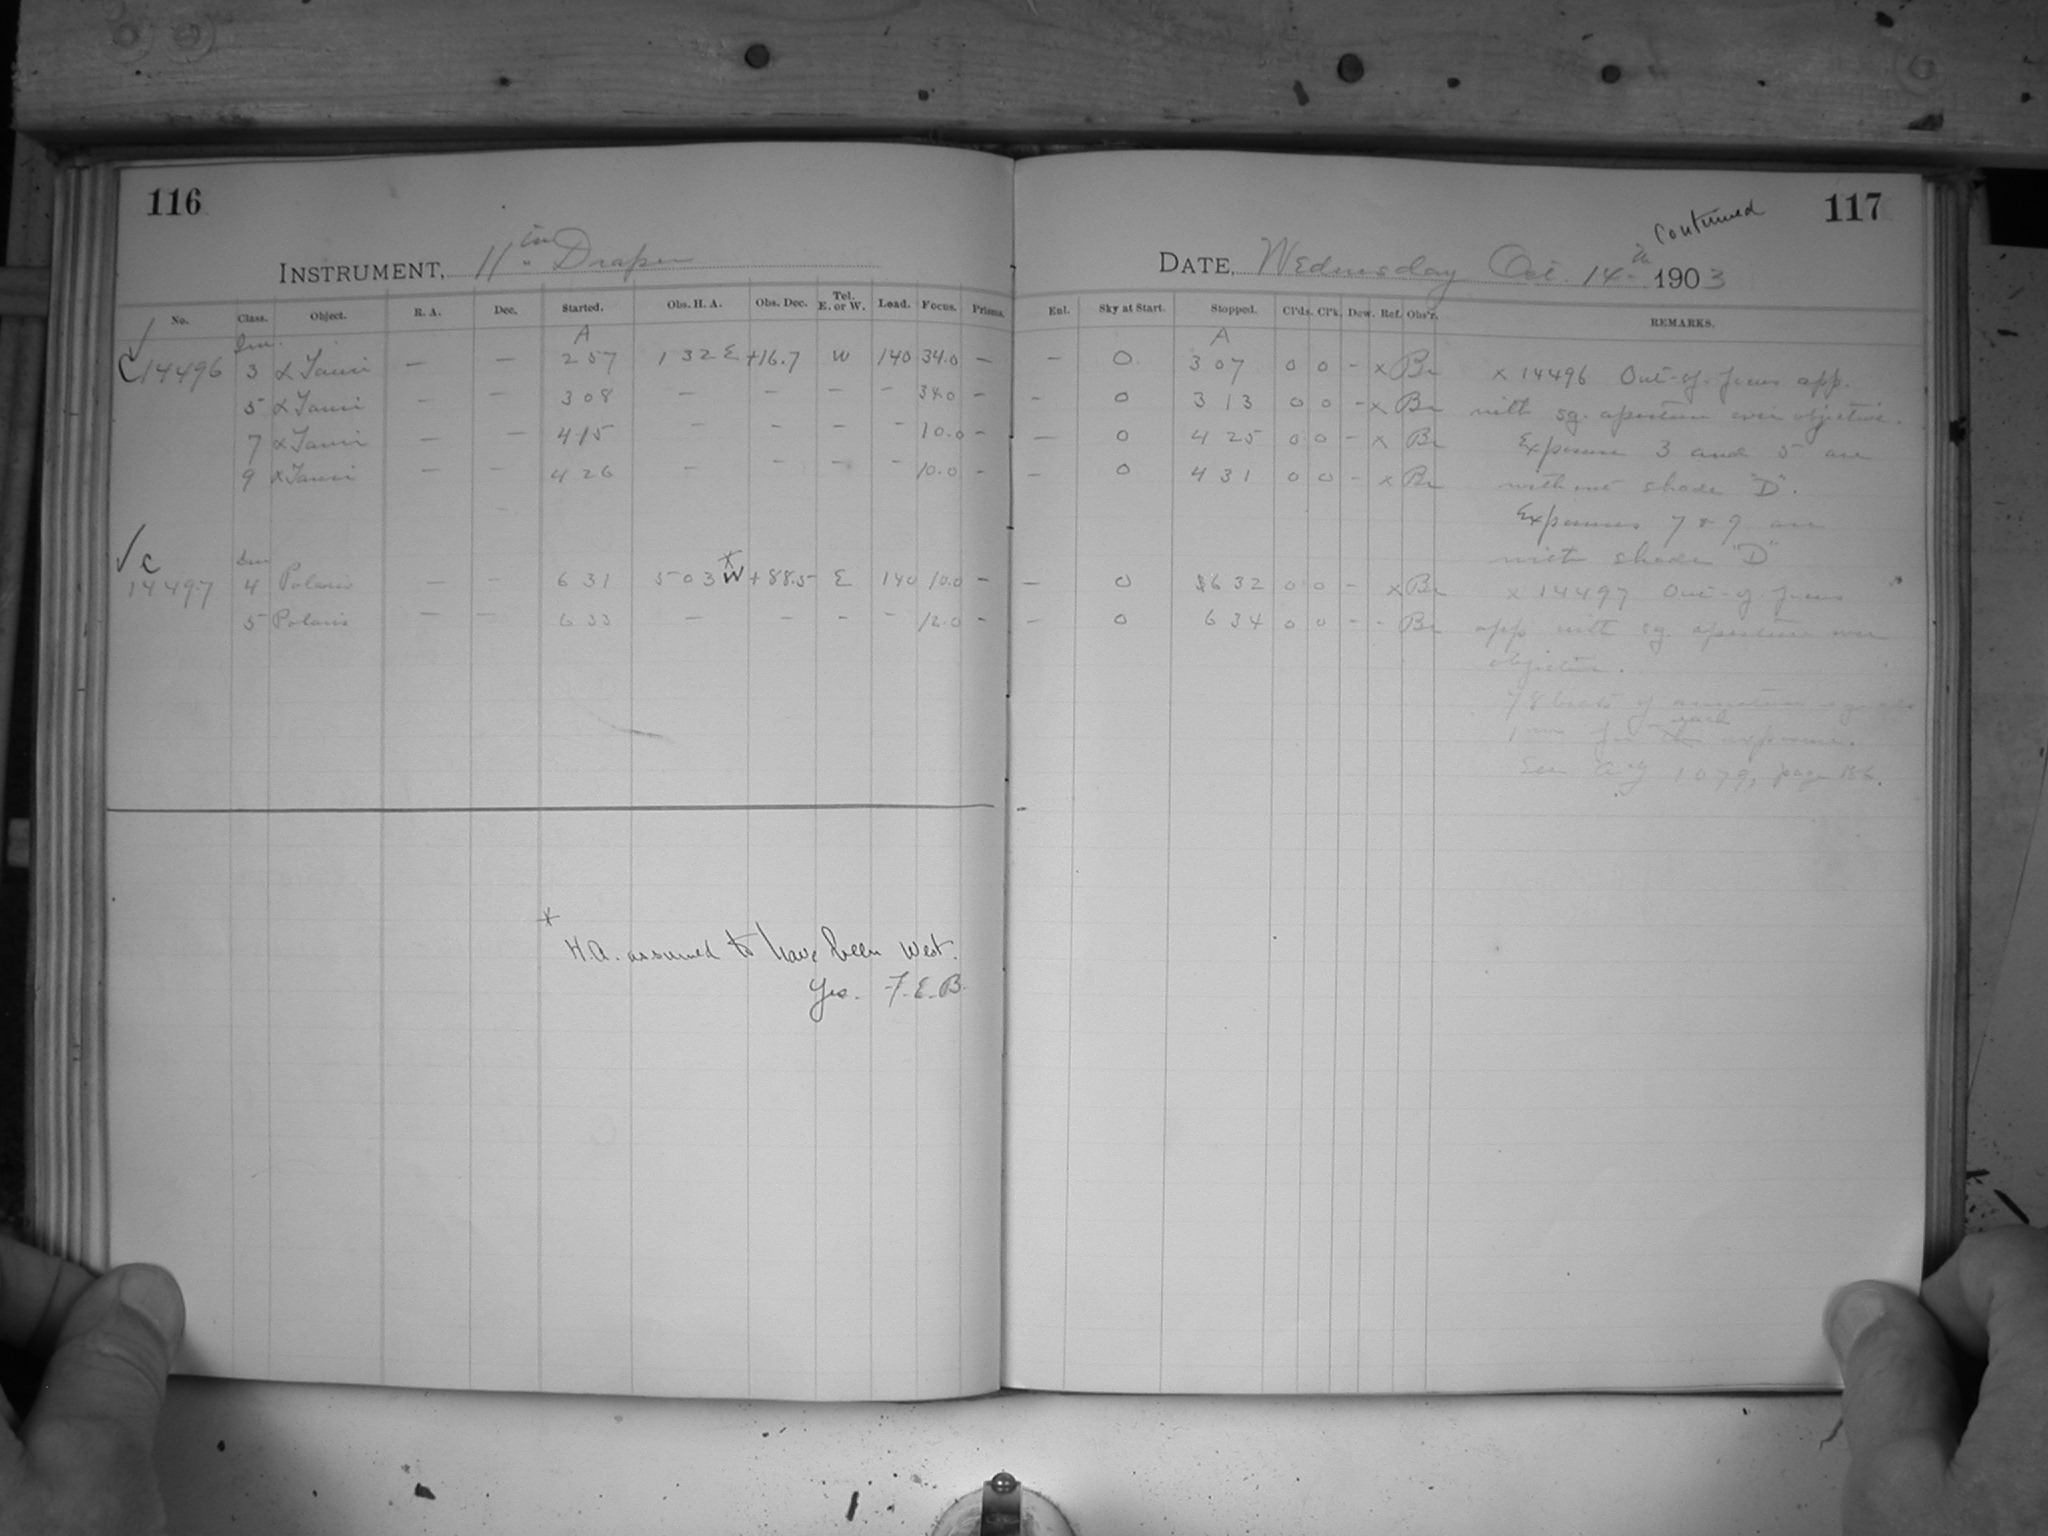 116
INSTRUMENT, 11 in Draper
No. Class. Object. R. A. Dec. Started. Obs. H. A. Obs. Dec. Tel. E. or W. Load. Focus. Prisms.
A
C14496 3 α Tauri — — 2 57 1 32 E +16.7 W 140 34.0 —
5 α Tauri — — 3 08 — — — — 34.0 —
7 α Tauri — — 4 15 — — — — 10.0 —
9 α Tauri — — 4 26 — — — — 10.0 —
√ C
14497 4 Polaris — — 6 31 5 03 W* +88.5 E 140 10.0 —
5 Polaris — — 6 33 — — — — 12.0 —
*
H.A. assumed to have been West.
Yes. F.E.B.
117
Continued
DATE, Wednesday Oct. 14th 1903
Enl. Sky at Start. Stopped. Cl'ds. Cl'k. Dew. Ref. Obs'r. REMARKS.
A
— 0 3 07 0 0 - x Br x 14496 Out-of-focus app.
- 0 3 13 0 0 - x Br with sq. aperture over objective.
— 0 4 25 0 0 - x Br Exposure 3 and 5 are
— 0 4 31 0 0 - x Br without shade "D".
Exposures 7 & 9 are
with shade "D"
— 0 6 32 0 0 - x Br x 14497 Out-of-focus
— 0 6 34 0 0 - - Br app with sq. aperture over
objective.
1 m for each exposure.
See 1079, page 156.